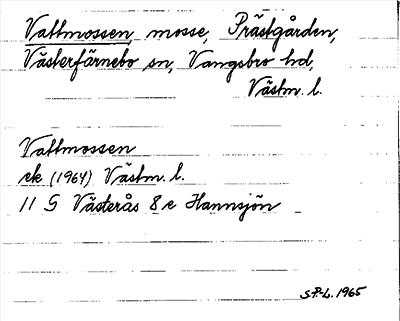 Vattmossen, mosse, Prästgården,
Västerfärnebo sn, Vangsbro hd,
Västm. l.
Vattmossen
ek (1964) Västm. l.
11 G Västerås 8 e Hannsjön
S.P-L. 1965